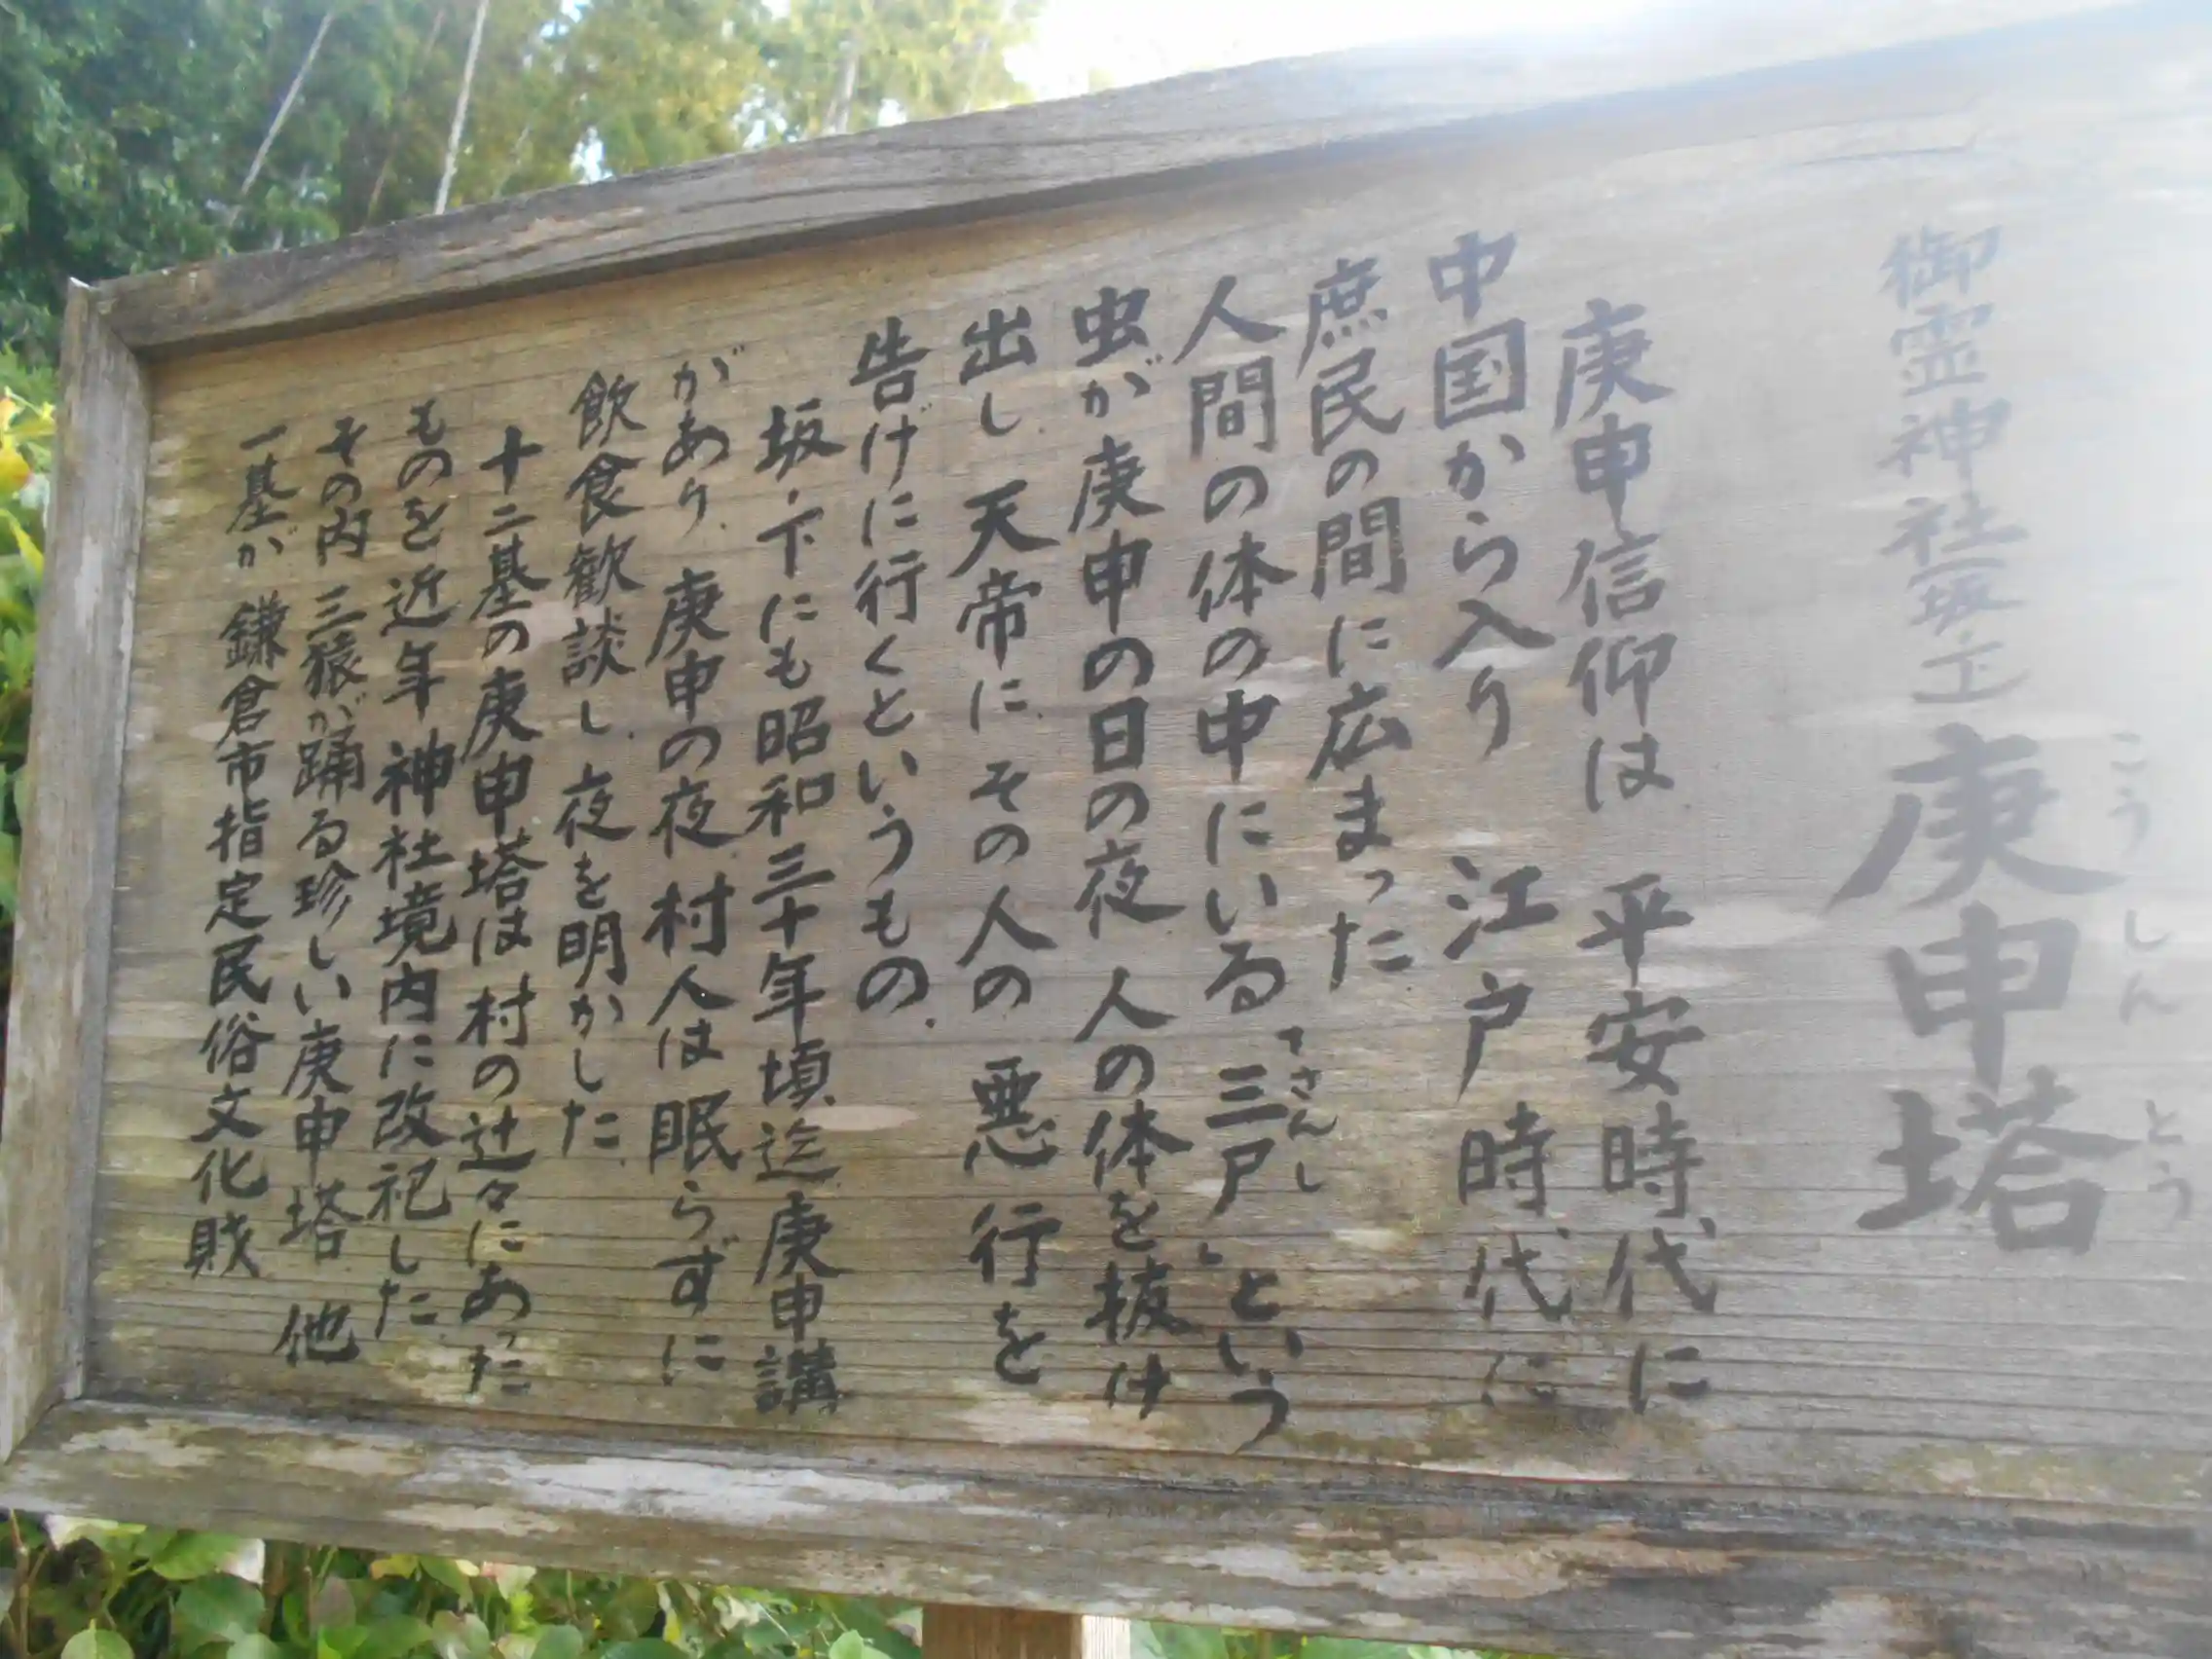 御霊神社 坂ノ下 庚申塔
こうしんとう
庚申信仰は 平安時代に
中国から入り 江戸時代に
庶民の間に広まった
人間の体の中にいる「三尸」という
さんし
虫が庚申の日の夜 人の体を抜け
出し 天帝に その人の 悪行を
告げに行くというもの.
坂ノ下にも昭和三十年頃迄庚申講
があり、庚申の夜 村人は眠らずに
飲食歓談し 夜を明かした
十二基の庚申塔は村の辻々にあった
ものを近年神社境内に改祀した
その内 三猿が踊る珍しい庚申塔 他
一基が 鎌倉市指定民俗文化財